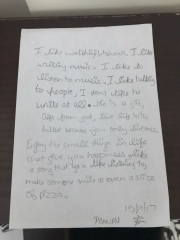 I like watching shows. I like
writing music. I like to
listen to music. I like talking
to people, I don't like to
write at all. life is a gift,
from god, live life to its
fullest because you only live once.
Enjoy the small things in life
that give you happiness, like
a song that you like listening to
make someone smile or even a slice
of pizza.